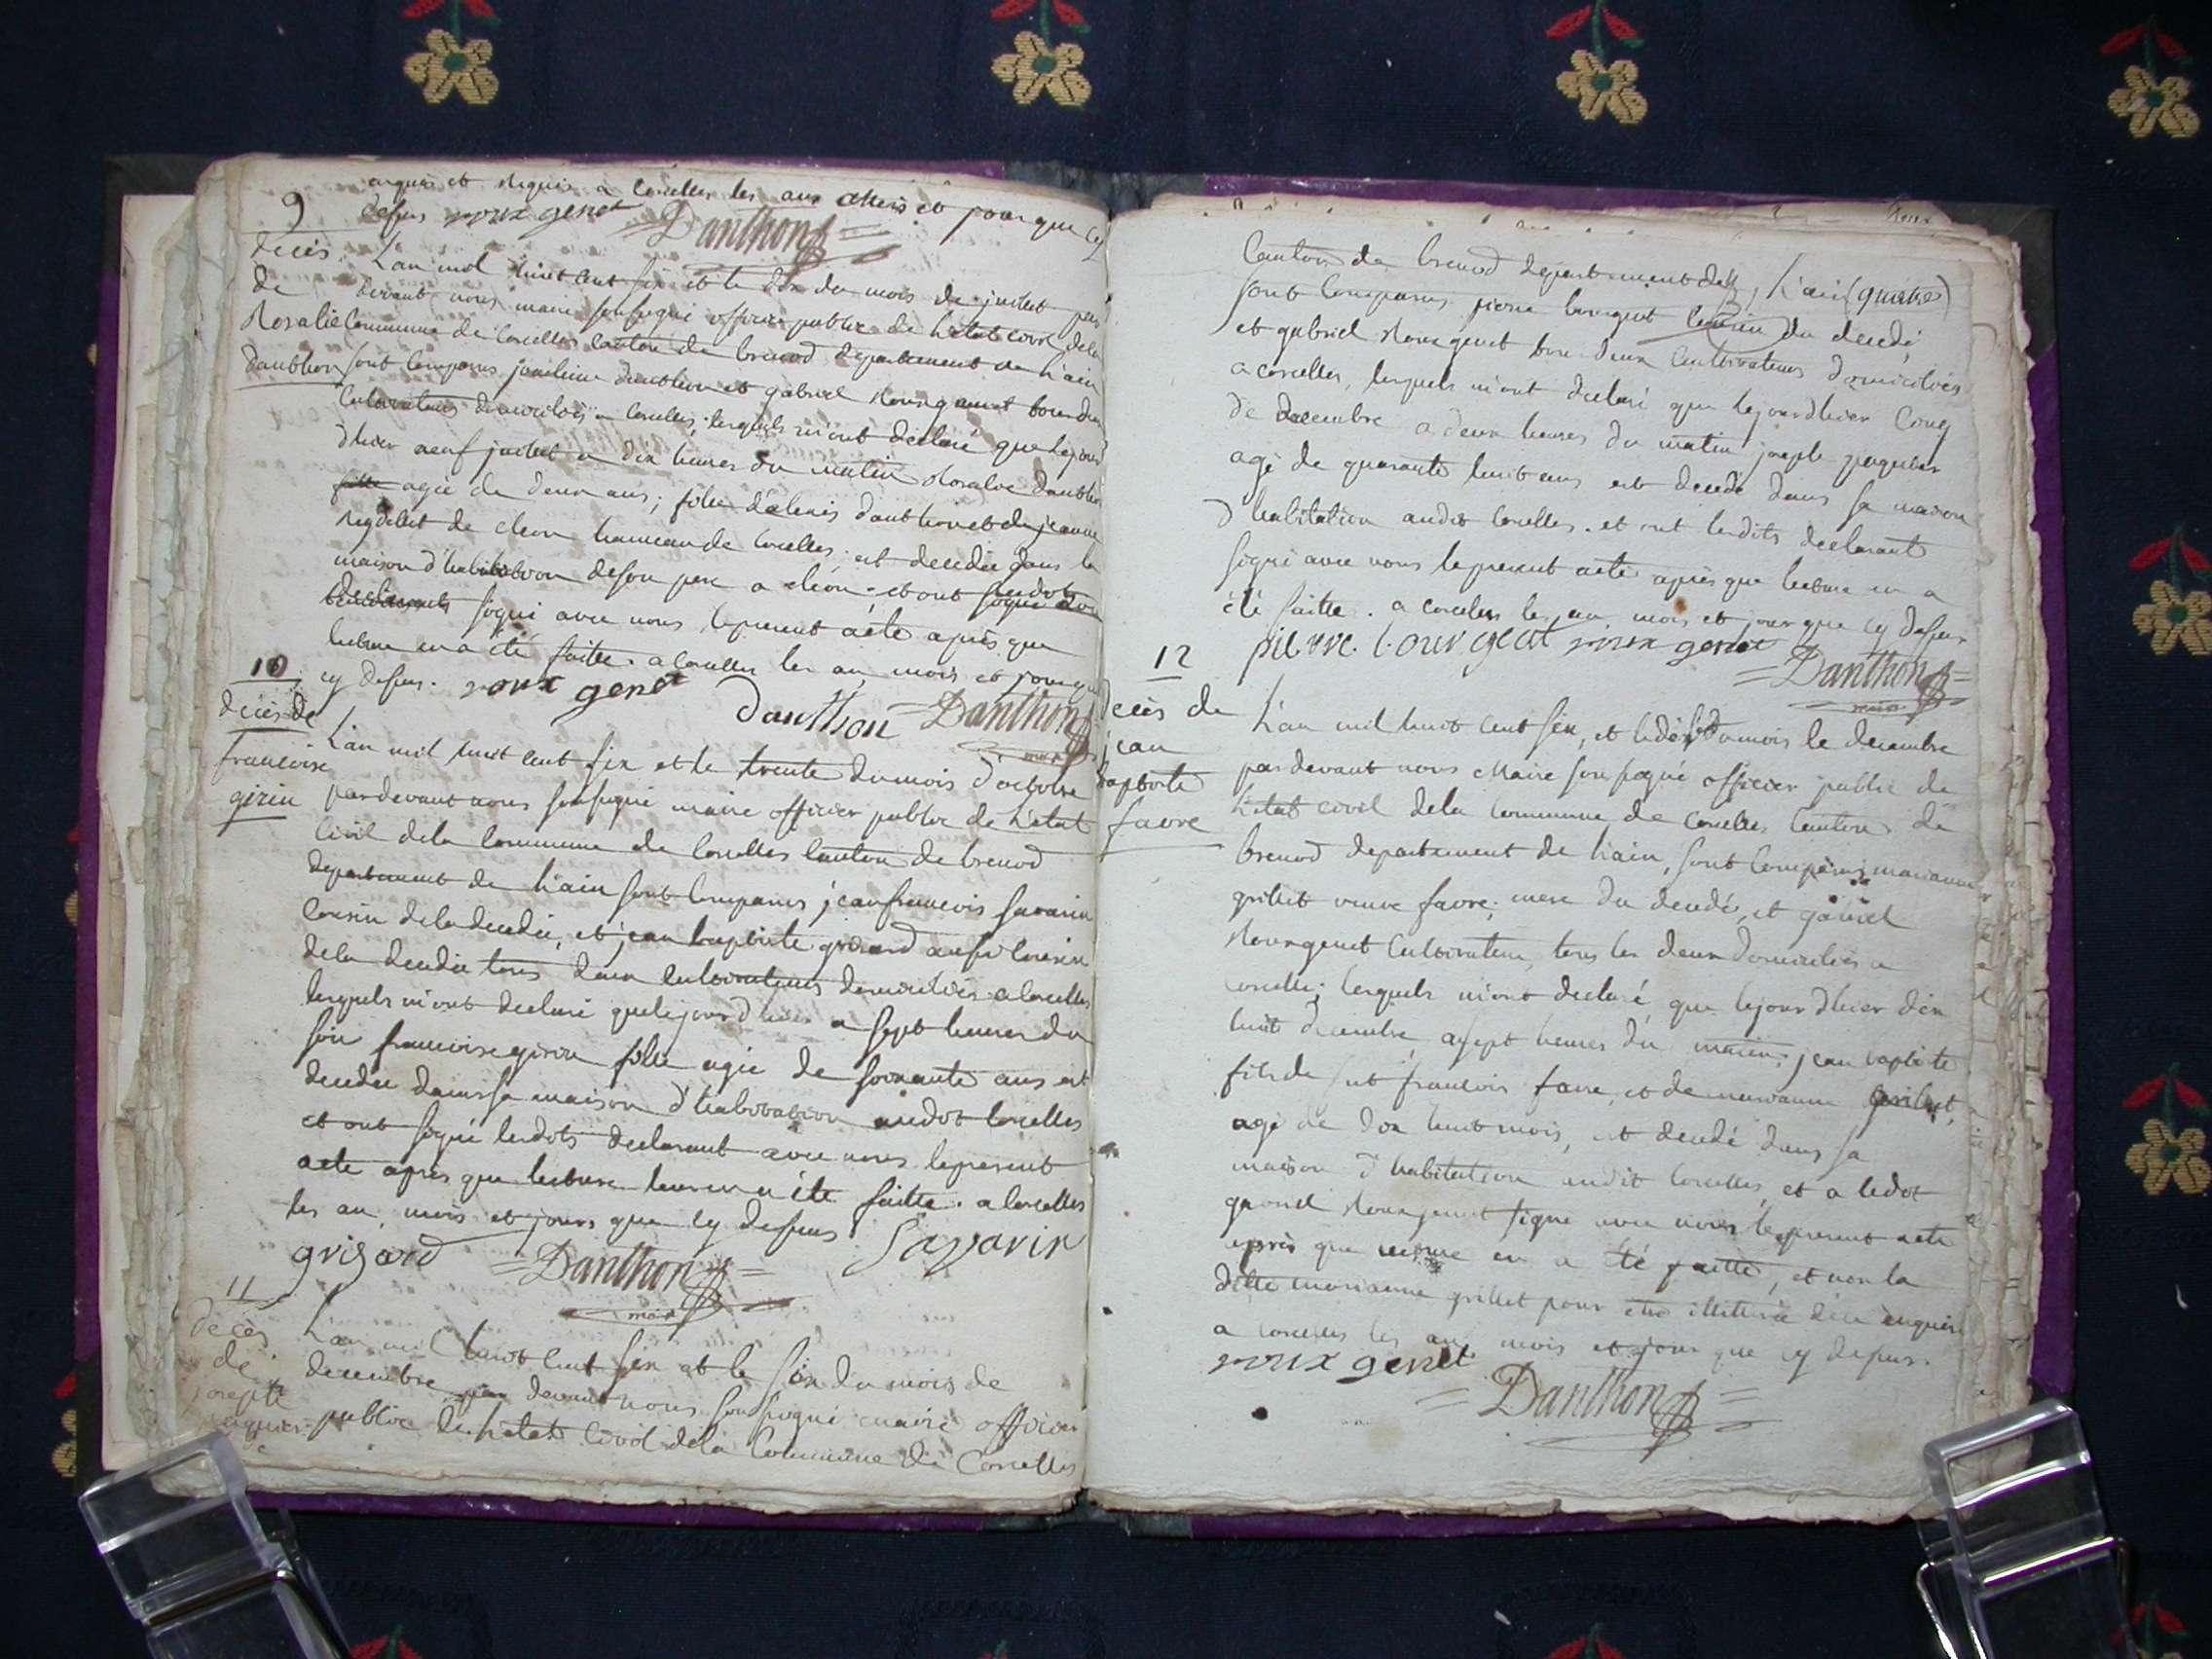 requis a Corcelles les an mois et jour que cy
9
dessus roux genet Danthon
décès
de
Rosalie
danthon
L'an mil huit cent six et le dix du mois de juillet par
devant nous maire soussigné officier public de l'etat civil dela
Commune de Corcelles canton de brenod departement de l'ain
sont comparus danthon et gabriel rouxgenet tous deux
Cultivateurs domiciliés a Corcelles, lesquels m'ont déclaré que le jour
d'hier neuf juillet a dix heures du matin Rosalie danthon
agée de deux ans; fille d'alexis danthon et de jeanne
de cleon hameau de Corcelles. est decedée dans la
maison d'habitation de son pere a cleon; et ont
signé avec nous le present acte après que
lecture en a été faitte. a Corcelles les an, mois et jour que
cy dessus. roux genet danthon Danthon
maire
10
décès de
francoise
girin
L'an mil huit cent six et le trente du mois d'octobre
pardevant nous soussigné maire officier public de l'etat
Civil dela Commune de Corcelles Canton de brenod
departement de l'ain sont Comparus jean francois savarin
Cousin dela decedée, et jean baptiste grisard aussi Cousin
dela decedée tous deux Cultivateurs domiciliés a Corcelles
lesquels m'ont declaré que le jour d'hier a sept heures du
soir francoise girin fille agée de soixante ans est
decedée dans sa maison d'habitation audit Corcelles
et ont signé lesdits declarant avec nous le present
acte après que lecture leur en a été faitte. a Corcelles
les an, mois et jours que cy dessus
grisard Danthon Savarin
maire
11
décès
de
joseph
L'an mil huit cent six et le six du mois de
decembre par devant nous soussigné maire officier
public de l'etat Civil dela Commune de Corcelles
Canton de brenod departement de l'ain
sont Comparus pierre bourgeat Cousin du decedé,
et gabriel rouxgenet tous deux Cultivateurs domiciliés
a corcelles, lesquels m'ont declaré que le jour d'hier Cinq
de decembre a deux heures du matin joseph
agé de quarante huit ans est decedé dans sa maison
d'habitation audit Corcelles. et ont lesdits declarant
signé avec nous le present acte après que lecture en a
été faitte. a corcelles les an, mois et jour que cy dessus
pierre bourgeat roux genet
Danthon
maire
12
décès de
jean
baptiste
favre
L'an mil huit cent six, et le du mois de decembre
par devant nous Maire soussigné officier public de
l'etat civil dela Commune de Corcelles Canton de
brenod departement de l'ain, sont Comparus marianne
grillet veuve favre, mere du decedé, et gabriel
rouxgenet Cultivateur, tous les deux domiciliés a
corcelles; lesquels m'ont declaré, que le jour d'hier dix
huit decembre, a sept heures du matin; jean baptiste
fils de fut francois favre, et de marianne grillet,
agé de dix huit mois, est decedé dans sa
maison d'habitation audit Corcelles, et a ledit
gabriel rouxgenet signé avec nous le present acte
après que lecture en a été faitte, et non la
ditte marianne grillet pour etre illitterée de ce enquise
a corcelles les an, mois et jour que cy dessus.
roux genet
Danthon